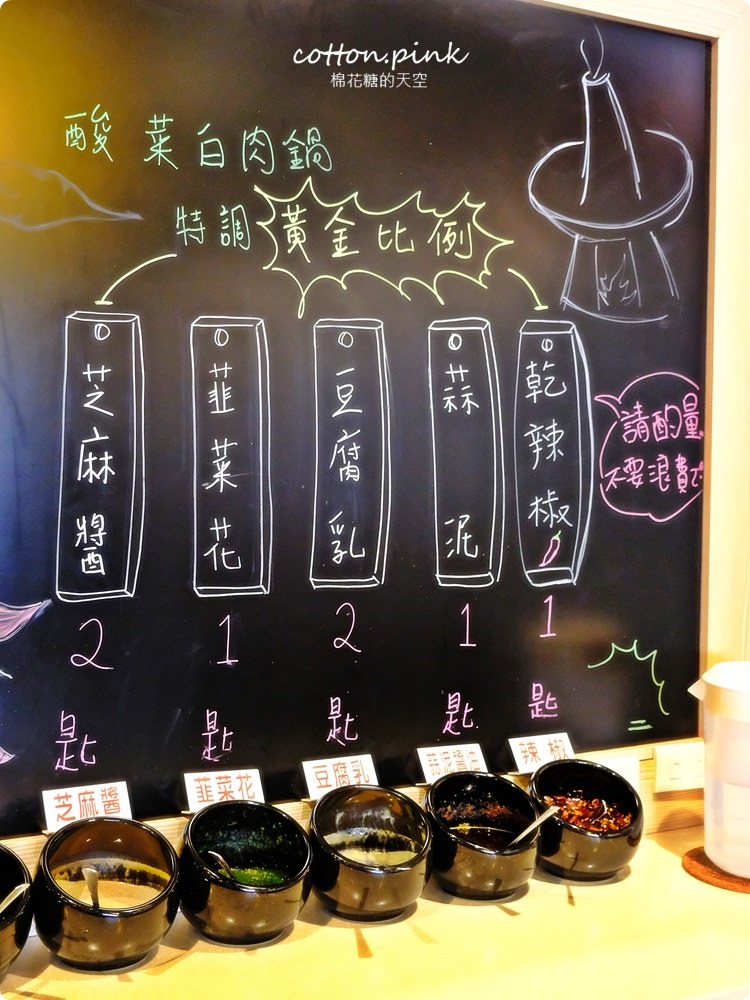 cotton.pink
棉花糖的天空
酸菜白肉鍋
特調 黃金比例
芝麻醬
2
匙
韭菜花
1
匙
豆腐乳
2
匙
蒜泥
1
匙
乾辣椒
1
匙
請酌量
不要浪費
芝麻醬
韭菜花
豆腐乳
蒜泥醬油
辣椒